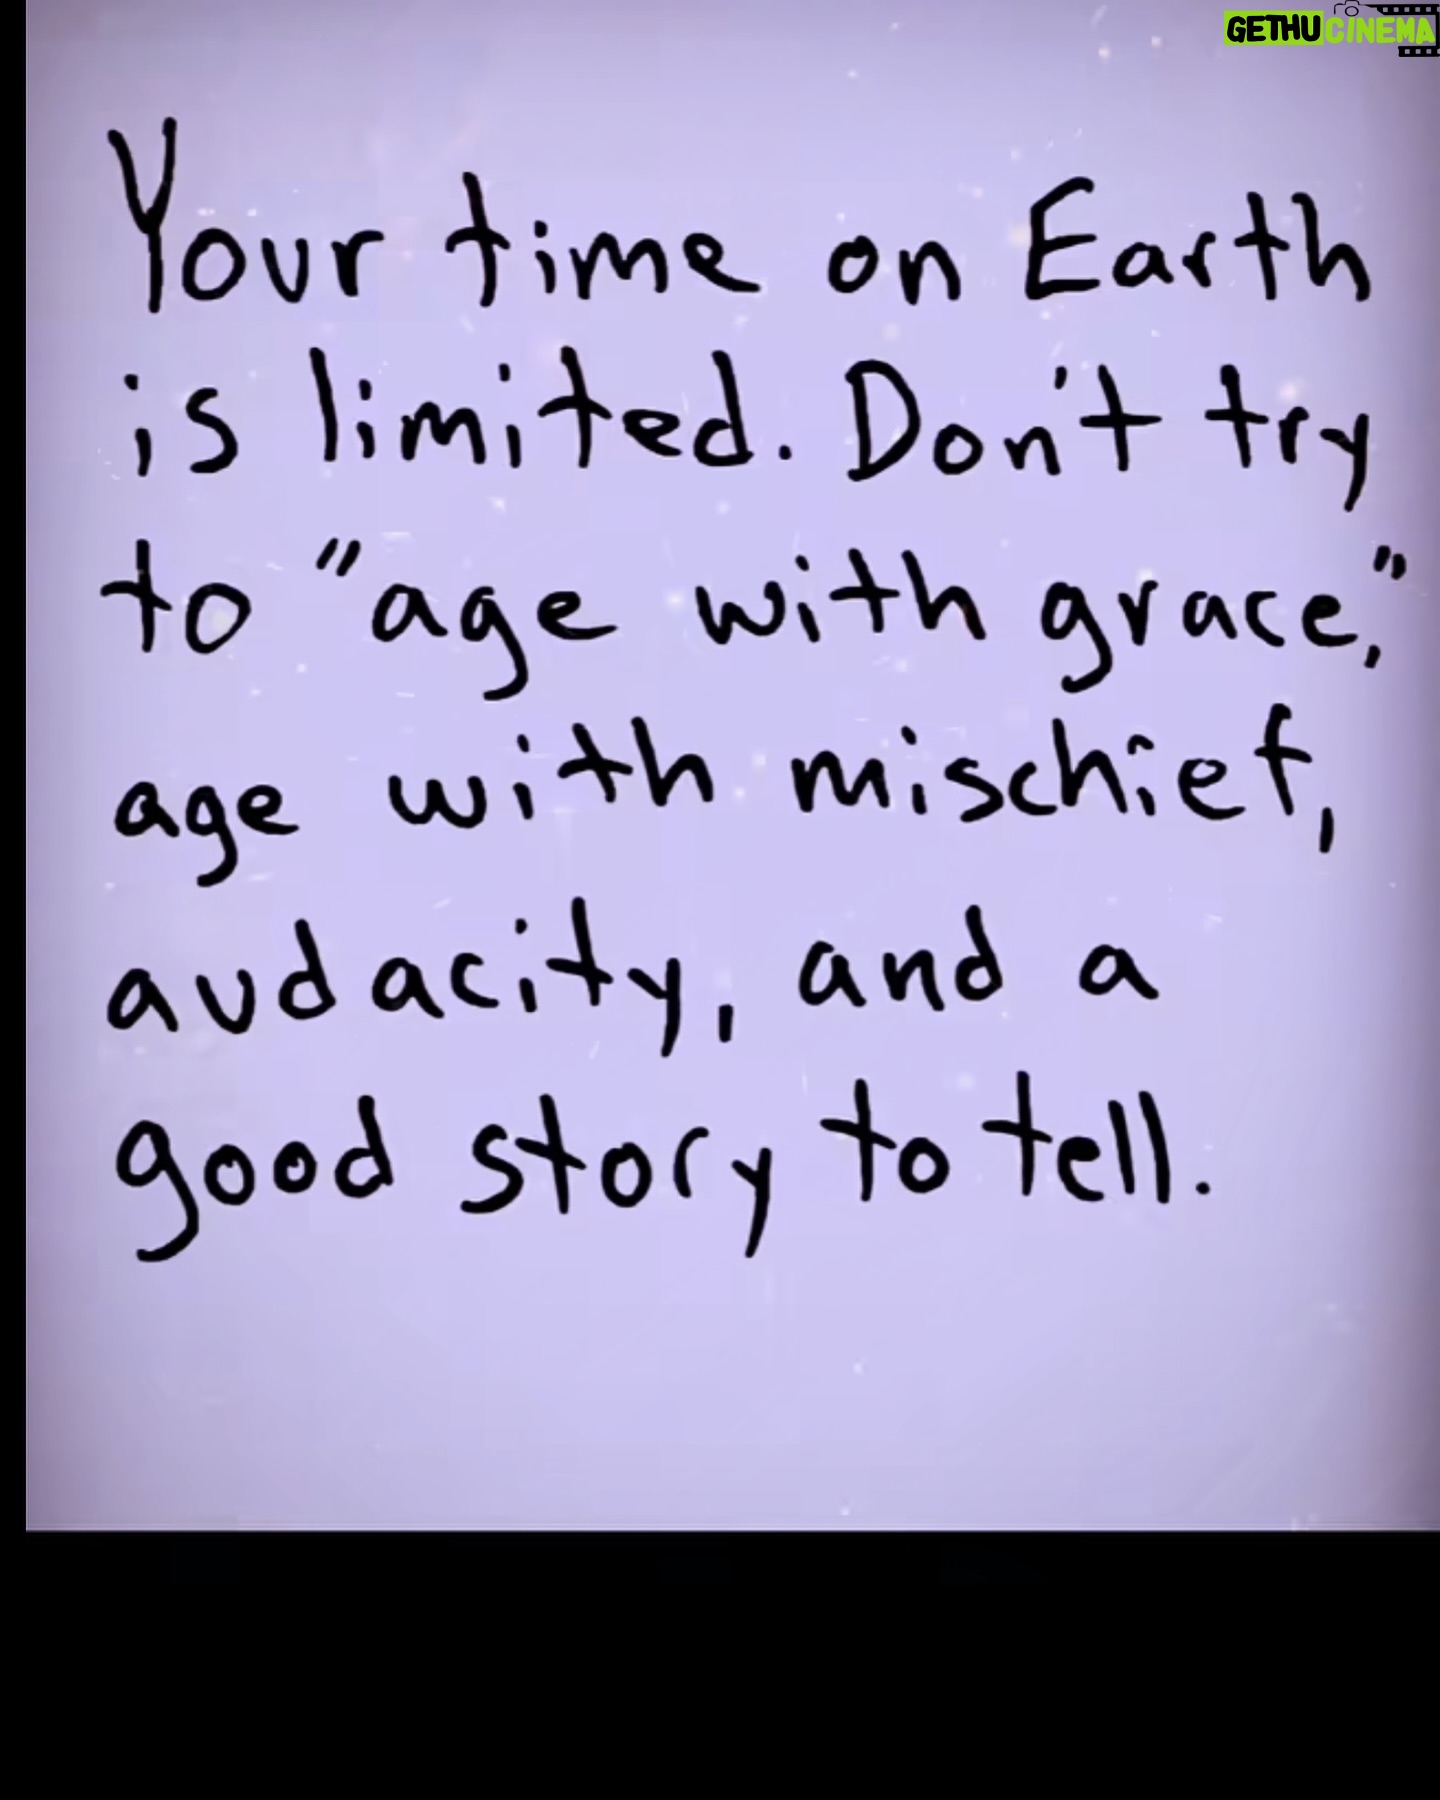 GETHUCINEMA
Your time on Earth
is limited. Don't try
to "age with grace,"
age with mischief,
audacity, and a
good story to tell.